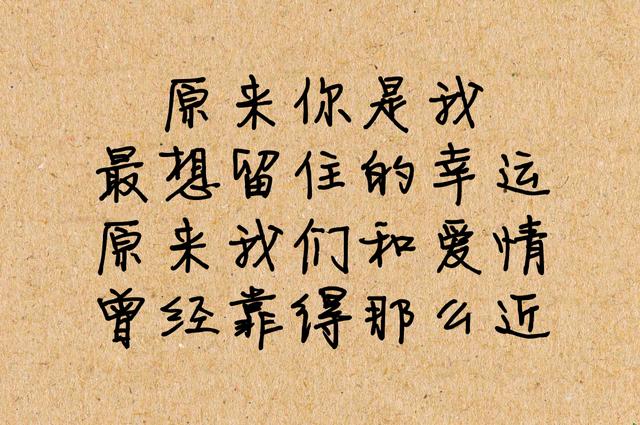 原来你是我
最想留住的幸运
原来我们和爱情
曾经靠得那么近